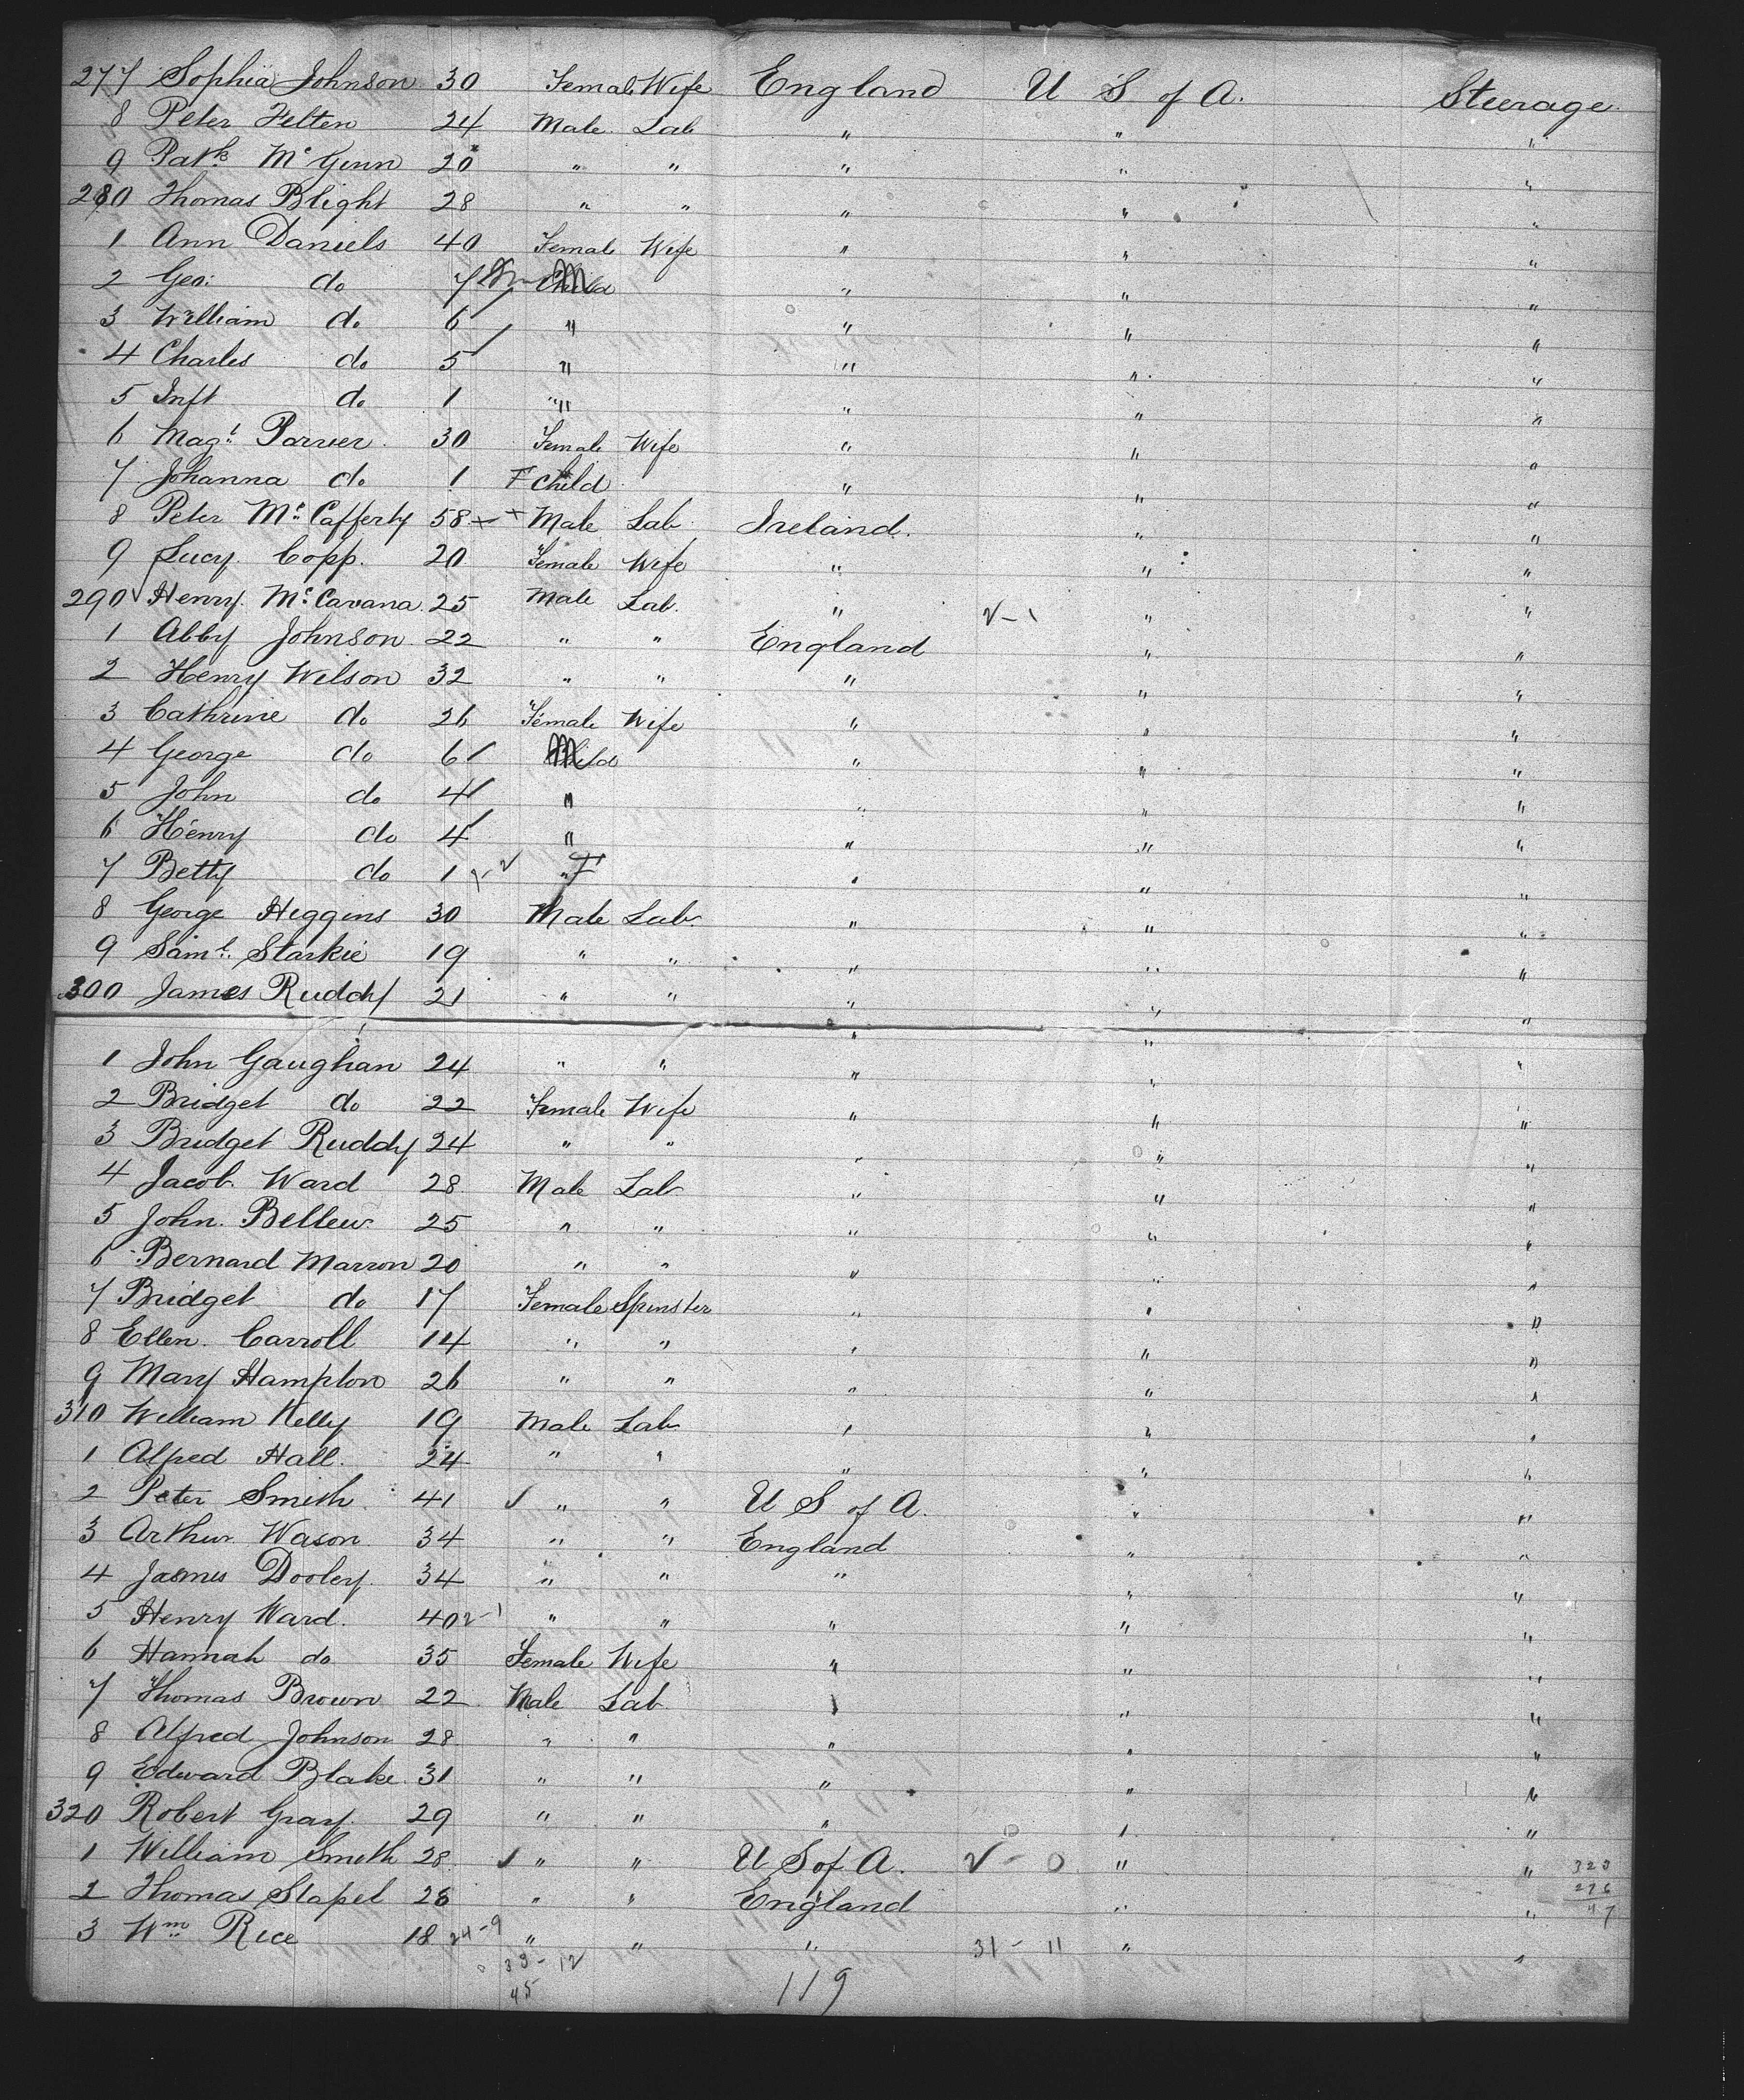 277 Sophia Johnson 30 Female Wife England U S of A. Steerage
8 Peter Felten 24 Male Lab " " "
9 Patk McGinn 20 " " " " "
280 Thomas Blight 28 " " " " "
1 Ann Daniels 40 Female Wife " " "
2 Geo: do 7 Child " " "
3 William do 6 " " " "
4 Charles do 5 " " " "
5 Inft do 1 " " " "
6 Magt Parver 30 Female Wife " " "
7 Johanna do 1 F Child " " "
8 Peter McCafferty 58 Male Lab Ireland. " "
9 Lucy Copp. 20 Female Wife " " "
290 Henry McCavana. 25 Male Lab. " " "
1 Abby Johnson 22 " " England " "
2 Henry Wilson 32 " " " " "
3 Cathrine do 26 Female Wife " " "
4 George do 6 Child " " "
5 John do 4 " " " "
6 Henry do 4 " " " "
7 Betty do 1 " F " " "
8 George Higgins 30 Male Lab. " " "
9 Saml. Starkie 19 " " " " "
300 James Ruddy 21 " " " " "
1 John Gaughan 24 " " " " "
2 Bridget do 22 Female Wife " " "
3 Bridget Ruddy 24 " " " " "
4 Jacob Ward 28 Male Lab " " "
5 John Bellew 25 " " " " "
6 Bernard Marron 20 " " " " "
7 Bridget do 17 Female Spinster " " "
8 Ellen Carroll 14 " " " " "
9 Mary Hampton 26 " " " " "
310 William Kelly 19 Male Lab " " "
1 Alfred Hall. 24 " " " " "
2 Peter Smith 41 " " U S of A. " "
3 Arthur Wason 34 " " England " "
4 James Dooley. 34 " " " " "
5 Henry Ward. 40 2-1 " " " " "
6 Hannah do 35 Female Wife " " "
7 Thomas Brown 22 Male Lab " " "
8 Alfred Johnson 28 " " " " "
9 Edward Blake. 31 " " " " "
320 Robert Gray. 29 " " " " "
1 William Smith 28 " " U S of A. " "
2 Thomas Stapel 28 " " England " "
3 Wm Rice 18 24-9 " " " 31-11 " "
323
276
47
33-12
45
119